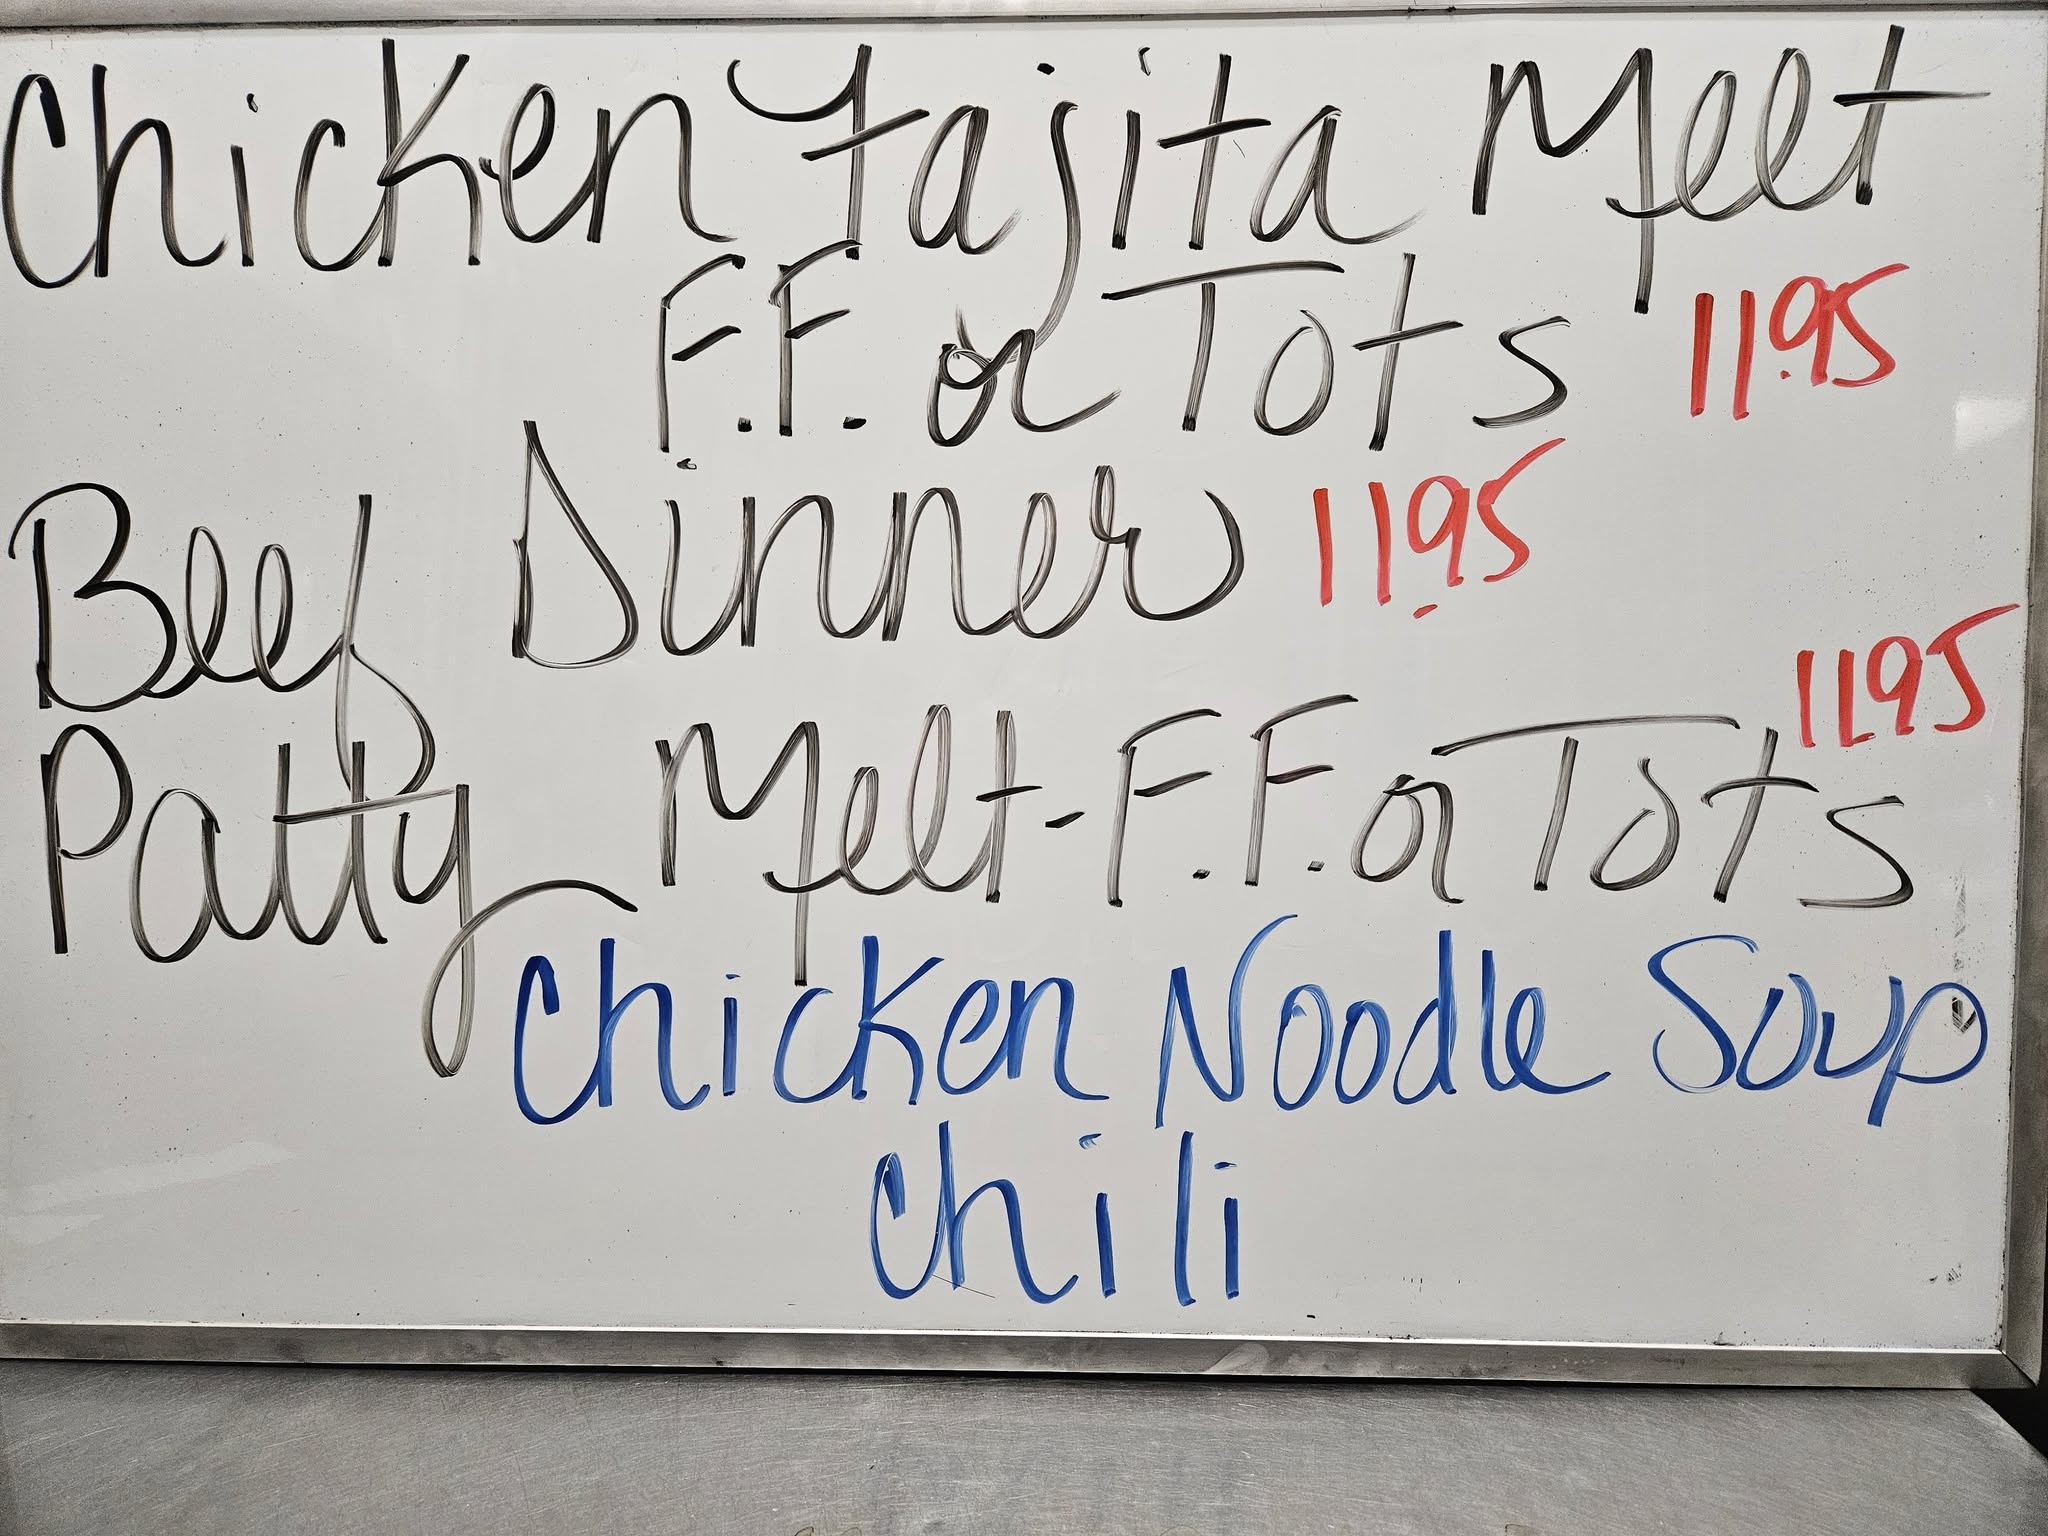 Chicken Fajita Melt
F.F. or Tots 11.95
Beef Dinner 11.95
Patty Melt-F.F. or Tots 11.95
Chicken Noodle Soup
Chili